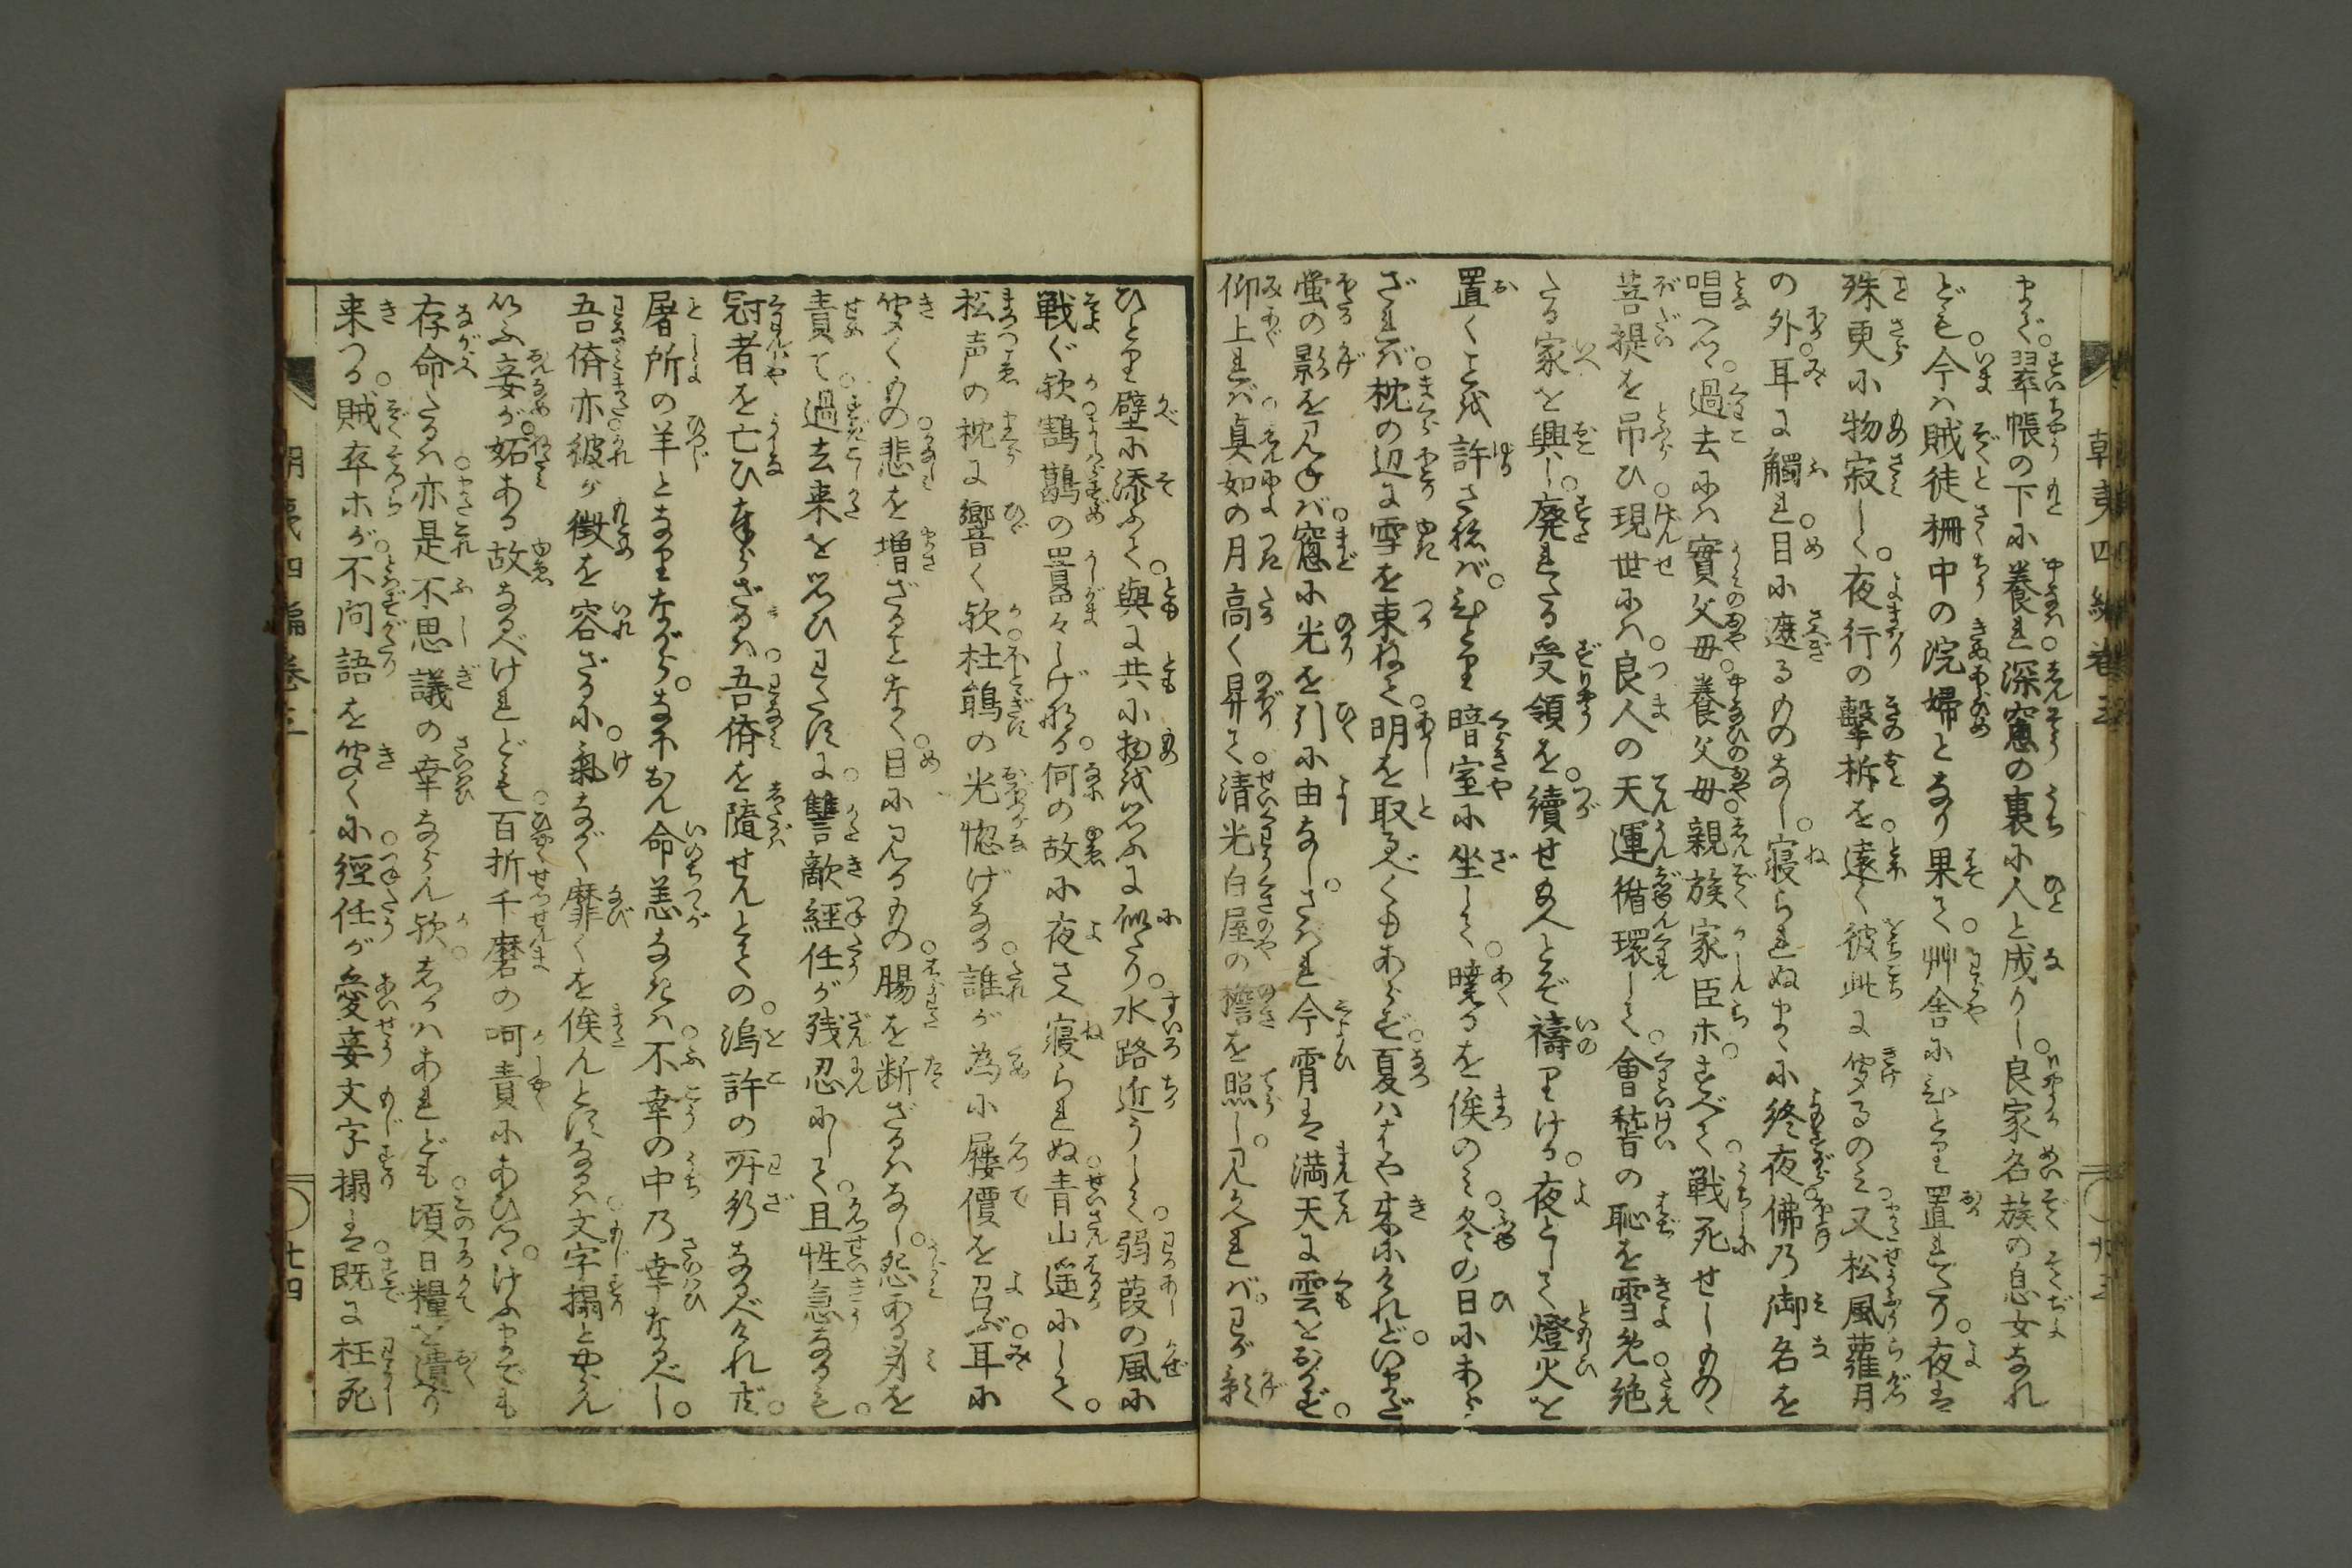 まで。翠帳の下に養れ。深窓の裏に人と成りし。良家名族の息女なれ
ども。今は賊徒柵中の浣婦となり果て。艸舎にひとり置れたり。夜は
殊更に物寂しく。夜行の撃柝を。遠く彼此に聞るのみ。又松風蘿月
の外。耳に觸れ。目に遮るものなし。寝られぬまゝに終夜。佛の御名を
唱へつゝ。過去には實父母。養父母。親族家臣ホ。すべて。戦死せしものゝ
菩提を吊ひ。現世には。良人の天運循環して。會稽の恥を雪め。絶
たる家を興し。廃れたる受領を。續せ給へとぞ禱りける。夜としも燈火を
置くことを許さねば。ひとり暗室に坐して。曉るを俟のみ。冬の日にあら
ざれば。枕の辺に雪を束ねて。明を取るべくもあらず。夏ははや来にけれど。いまだ
螢の影を見ねば。窓に光を引に由なし。されば今宵は満天に雲をおかず。
仰上れば。真如の月高く昇て。清光白屋の檐を照し。見かへれば。わが影
ひとり壁に添ふて。與に共に物を思ふに似たり。水路近うして。弱葭の風に
戦ぐ欤。鶺鷃の囂々しげなる。何の故に夜さへ寝られぬ。青山遥にして。
松声の枕に響く欤。杜鵑の光惚げなる。誰が為に屨價を召ぶ。耳に
聞くもの。悲を増ざることなく。目に見るもの。腸を断ざるはなし。怨ある身を
責て。過去来を思ひわたすに。讐敵經任が残忍にして。且性急なるも。
冠者を亡ひ奉らざるは。吾儕を隨せんとての。烏許の所行なるべけれど。
屠所の羊となりながら。なほおん命恙なきは。不幸の中の幸なるべし。
吾儕亦。彼が徴を容ざるに。氣ながく靡くを俟んとするは。文字摺とやらん
いふ妾が。妬ある故なるべけれども。百折千磨の呵責にあひつゝ。けふまでも
存命たるは。亦是不思議の幸ならん欤。しかはあれども。頃日糧を遺り
来つる。賊卒ホが。不問語を聞くに。經任が愛妾文字摺は。既に枉死
朝夷四編卷三
廿三
朝夷四編卷三
廿四